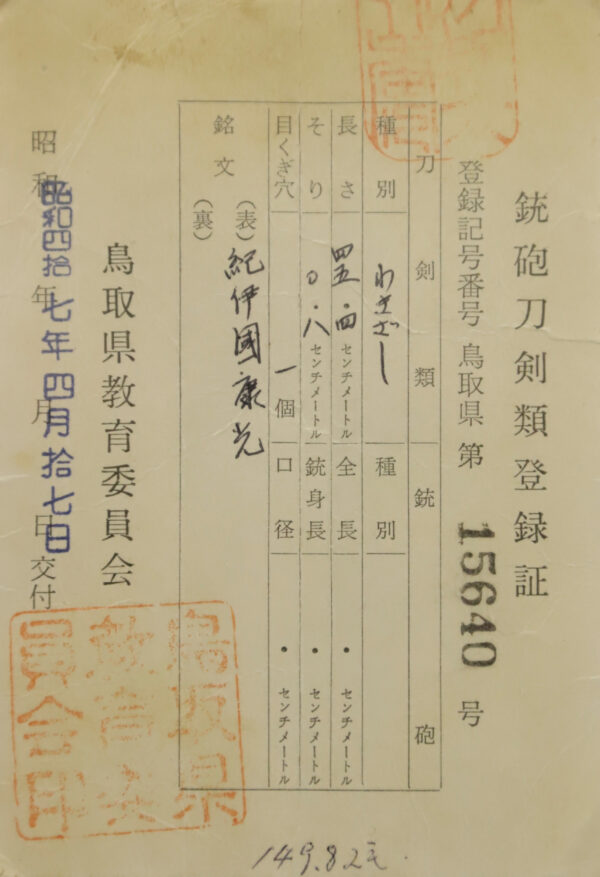 銃砲刀剣類登録証
登録記号番号 鳥取県 第 15640 号
刀剣類
種別 わきざし
長さ 四五・四センチメートル
そり 〇・八センチメートル
目くぎ穴 一個
銘文 (表) 紀伊國康光
(裏)
銃砲
種別
全長 ・ センチメートル
銃身長 ・ センチメートル
口径 ・ センチメートル
鳥取県教育委員会
昭和 年 月 日交付
昭和四拾七年四月拾七日
鳥取県
教育委
員会印
149.8.2